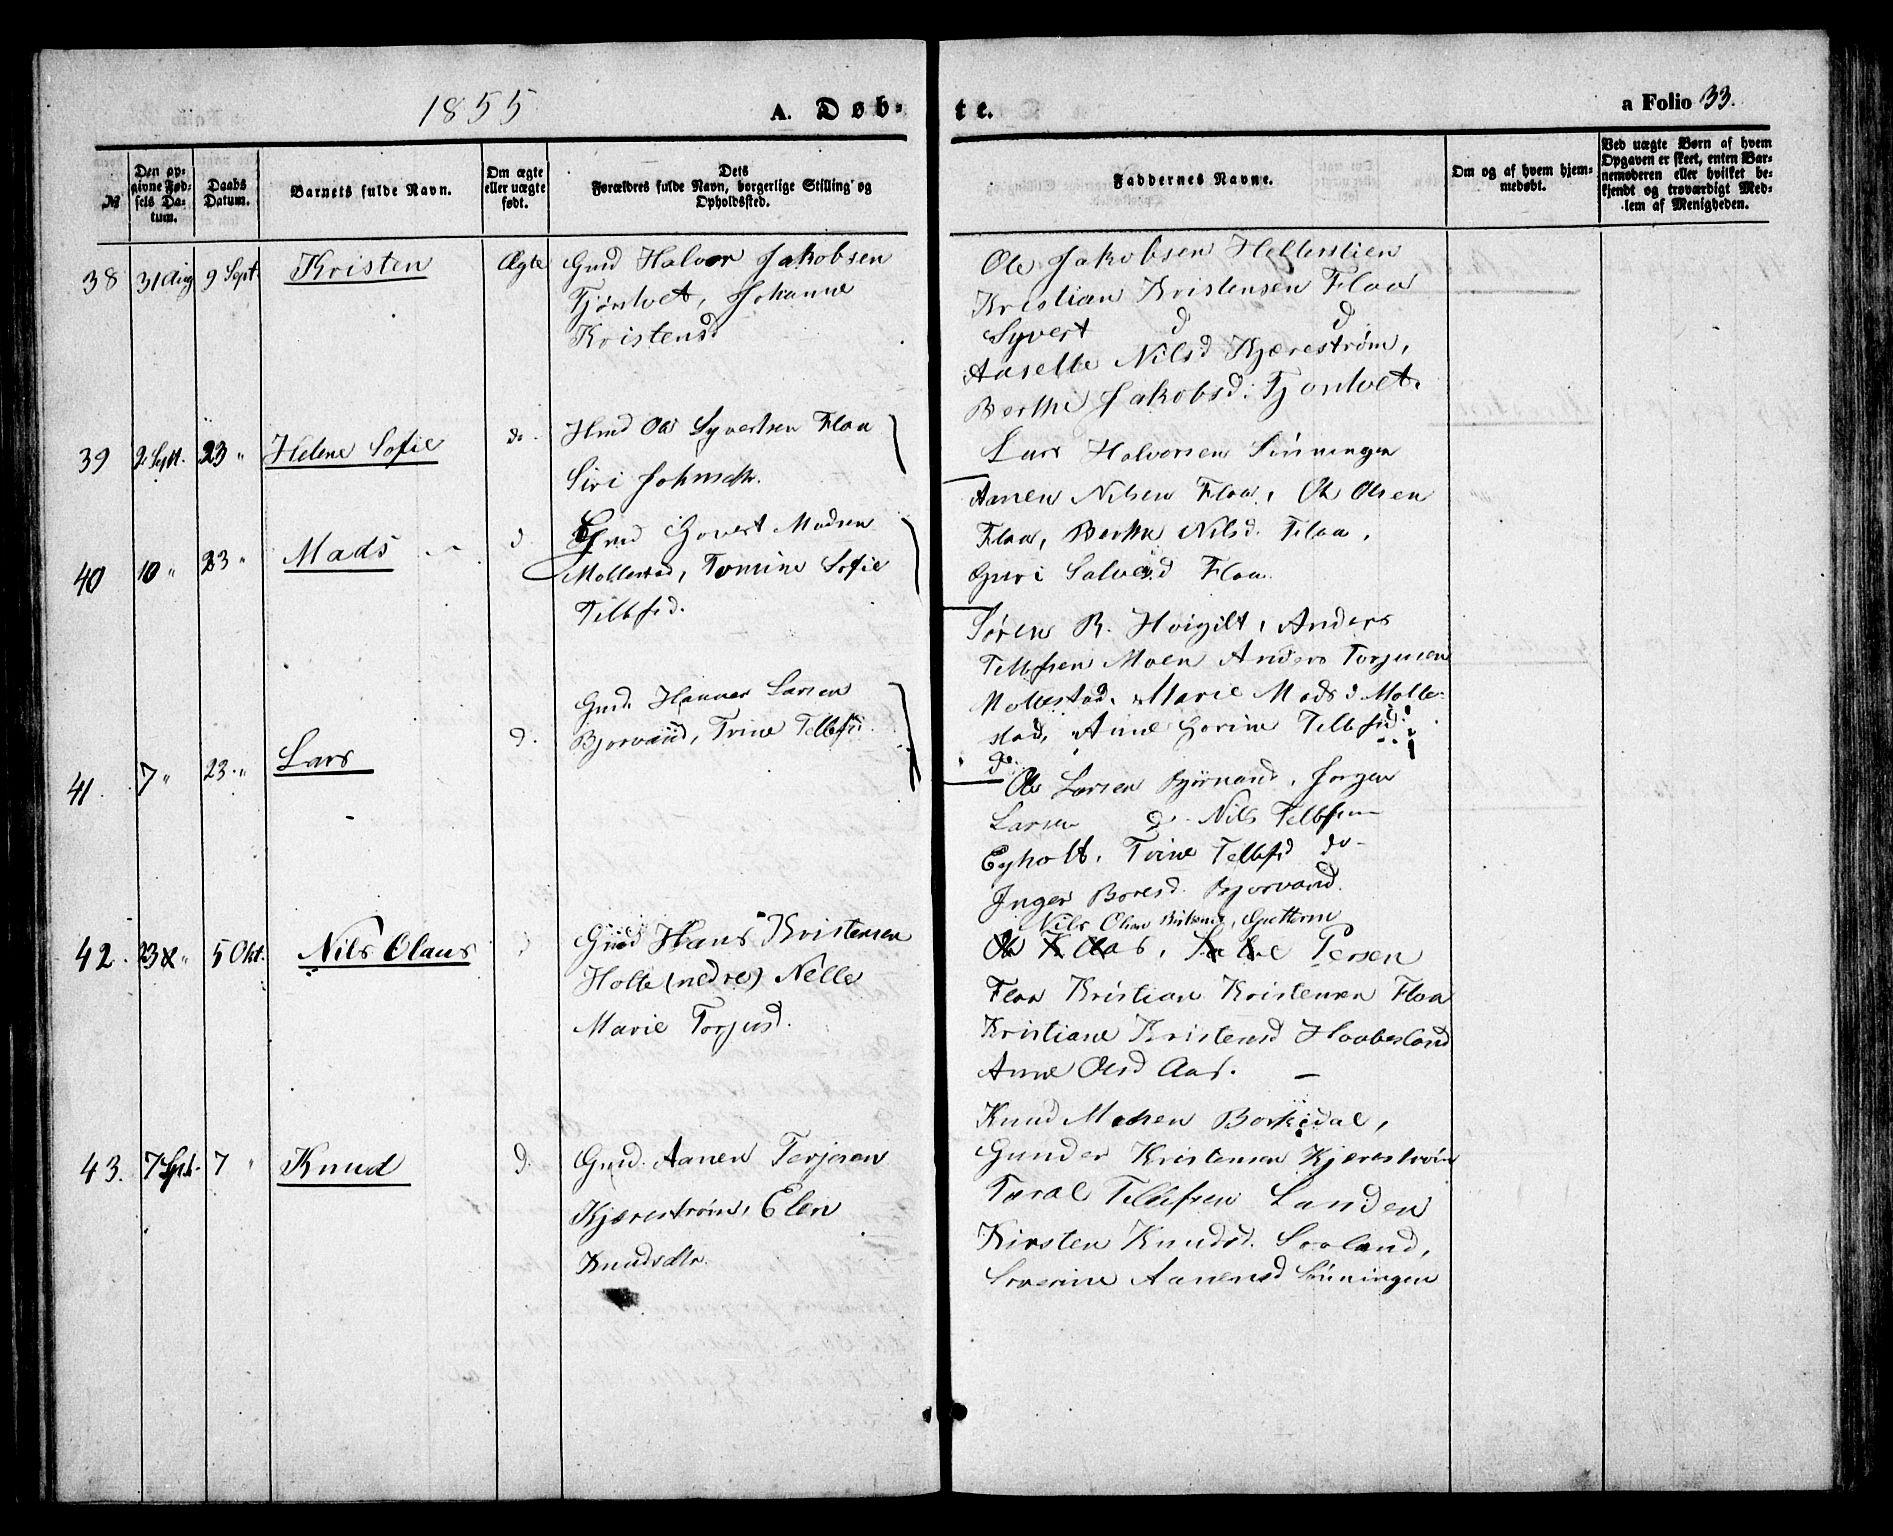 1855
A. Døb-
te.
a Folio 33.
№
Den op-
givne Fød-
sels Da-
tum.
Daabs
Datum.
Barnets fulde Navn.
Om ægte
eller uægte
født.
Dets
Forældres fulde Navn, borgerlige Stilling og
Opholdssted.
Faddernes Navne.
Om og af hvem hjem-
medøbt.
Ved uægte Børn af hvem
Opgaven er skeet, enten Bar-
nemoderen eller hvilket be-
kjendt og troværdigt Med-
lem af Menigheden.
38 31 Aug 9 Sept. Kristen Ægte Gmd Halvor Jakobsen
Tjøntvet, Johanne
Kristensd
Ole Jakobsen Hellerslien
Kristian Kristensen Flaa
Syvert d d
Aaselle Nilsd Kjærestrøm,
Berthe Jakobsd. Tjøntvet.
39 2 Sept. 23 " Helene Sofie do. Hmd Ole Syvertsen Flaa
Siri Johnsdtr.
Lars Halvorsen Sünningen
Aanen Nilsen Flaa, Ole Olsen
Flaa, Berthe Nilsd. Flaa,
Guri Salvesd Flaa.
40 10 " 23 " Mads d. Gmd Govert Madsen
Mollestad, Tomine Sofie
Tellefsd.
Søren R. Hvigilt, Anders
Tellefsen Moen Anders Torjusen
Mollestad, Marie Mads d Molle-
stad, Anne Gorine Tellefsd.
do.
41. 7 " 23 " Lars d. Gmd. Hanver Larsen
Bjorvand, Trine Tellefsd.
Ole Larsen Bjørvand, Jørgen
Larsen d. Nils Tellefsen
Eyholt, Trine Tellefsd do-
Inger Boresd. Bjorvand.
42. 23 " 5 Okt. Nils Olaus d Gmd Hans Kristensen
Holte (nedre) Nelle
Marie Torjusd.
Nils Olsen
Persen
Flaa Kristian Kristensen Flaa
Kristiane Kristensd Haabesland
Anne Olsd Aas. —
43. 7 Sept. 7 " Knud d. Gmd. Aanen Terjesen
Kjærestrøm, Elen
Knudsdtr.
Knud Madsen Borkedal,
Gunder Kristensen Kjærestrøm
Taral Tellefsen Landen
Kirsten Knudsd. Sooland,
Severine Aanensd Sünningen